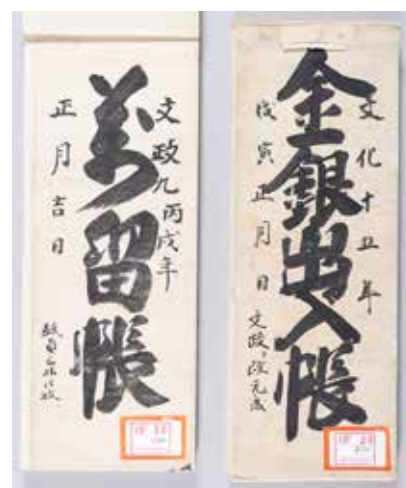 文化十五年
金銀出入帳
戊寅正月日
文政ト改元成
文政九丙戌年
萬留帳
正月吉日